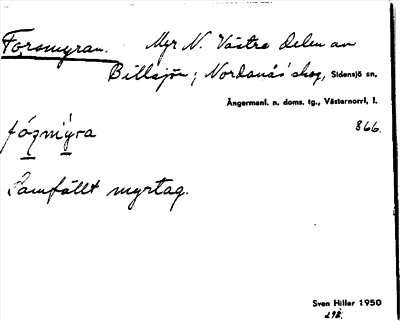 Forsmyran. Myr N. Västra delen av
Billsjön; Nordanås' skog, Sidensjö sn,
Ångermanl. n. doms. tg., Västernorrl. l.
866.
fózmy̍ra
Samfällt myrtag.
Sven Hiller 1950